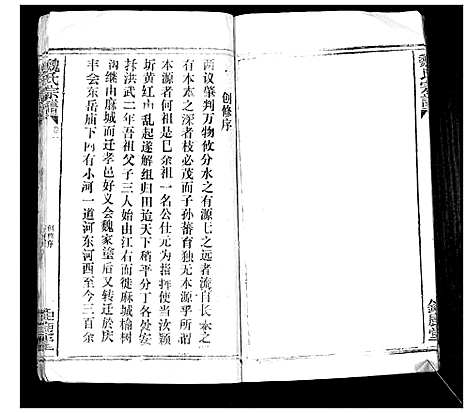 魏氏宗譜
創修序
兩议肇判万物攸分水之有源七之远者流自长木之
有本木之深者枝必茂而子孙蕃育独无本源乎所谓
本源者何祖是巳余祖一名公仕元为指挥使当汝颖
圻黄红山乱起遂解组归田迨天下稍平分丁各处安
挿洪武二年吾祖父子三人始由江右而徙麻城榆树
沟继由麻城而迁孝邑好义会魏家垅后又转迁於庆
丰会东岳庙下网有小河一道河东河西至今三百余
魏氏宗譜
卷一
創修序
鉅鹿堂
鉅鹿堂